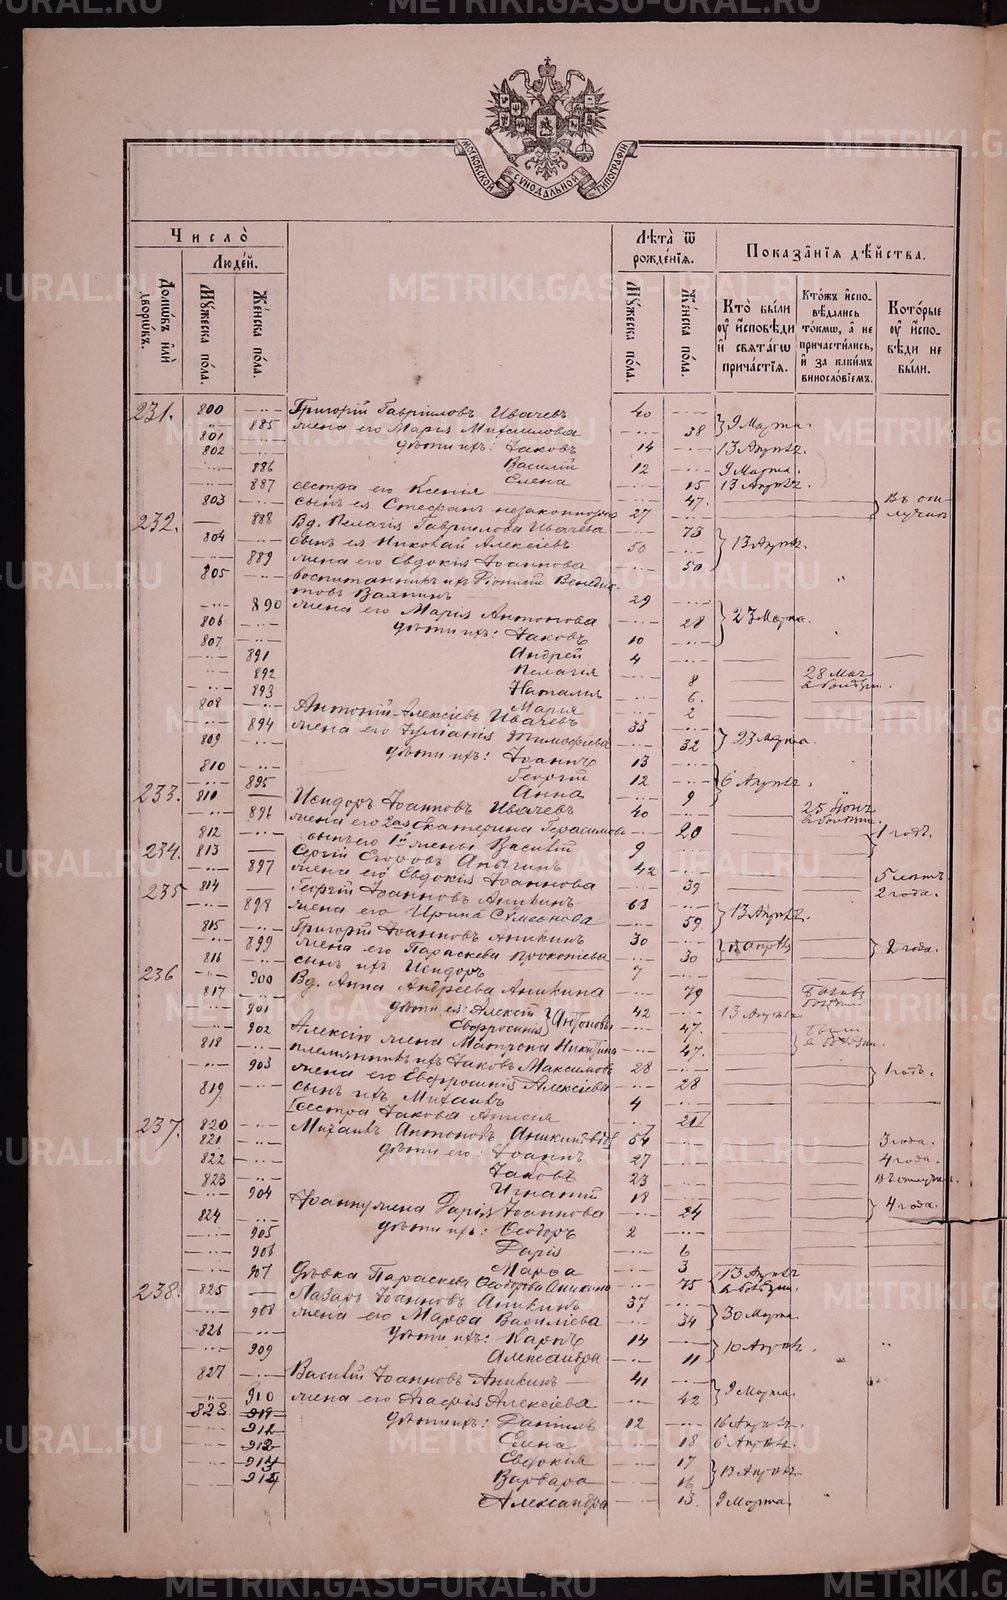 МОСКОВСКОЙ СУНОДАЛЬНОЙ ТИПОГРАФІИ
Число̀
Людéй.
Домѡ́въ и҆лѝ дворѡ́въ.
Мꙋ́жеска по́ла.
Же́нска по́ла.
Лѣ́та ѿ рожде́нїѧ.
Мꙋ́жеска по́ла.
Же́нска по́ла.
Показа̑нїѧ дѣ́йства.
Кто̀ бы́ли оу҆ и҆сповѣ́ди и҆ свѧта́гѡ прича́стїѧ.
Кто́жъ и҆сповѣ́дались то́кмѡ, а҆ не причасти́лись, и҆ за каки́мъ винословїемъ.
Кото́рые оу҆ и҆сповѣ́ди не бы́ли.
231. 800 Григорій Гавріиловъ Ивачевъ 40
885 жена его Марія Михаилова 38 9 Марта
801 дѣти ихъ: Іаковъ 14 13 Апрѣля.
802 Василій 12 9 Марта.
886 Елена 15 13 Апрѣля
887 сестра его Ксенія 47.
803 сынъ ея Стефанъ незаконнорож 27
232. 888 Вд. Пелагія Гавріилова Ивачева 73
804 сынъ ея Николай Алексіевъ 50 13 Апрѣля.
889 жена его Евдокія Іоаннова 50
805 воспитанникъ ихъ Діонисій Венедик-
товъ Вахнинъ 29
890 жена его Марія Антонова 28 23 Марта
806 дѣти ихъ: Іаковъ 10
807 Андрей 4
891 Пелагія 8 28 Мая
892 Наталія 6.
893 Марія 2
808 Антоній Алексіевъ Ивачевъ 33
894 жена его Іуліанія Тимофѣева 32 23 Марта.
809 дѣти ихъ: Іоаннъ 13
810 Георгій 12 6 Апрѣля
895 Анна 9
233. 810 Исидоръ Іоанновъ Ивачевъ 40 25 Іюн
896 жена его 2оя Екатерина Герасимова 20 1 годъ.
812 сынъ его 1й жены Василій 9
234. 813 Сергій Егоровъ 42 5 лѣтъ
897 жена его Евдокія Іоаннова 39 2 года.
235 814 Георгій Іоанновъ Аникинъ 63
898 жена его Ирина Симеонова 59 13 Апрѣля
815 Григорій Іоанновъ Аникинъ 30
899 жена его Параскева Прокопіева 30 2 года.
816 сынъ ихъ Исидоръ 7
236 900 Вд. Анна Андреева Аникина 79
817 дѣти ея: Алексій 42 13 Апрѣля
901 Евфросинія Антоновы 47.
902 Алексію жена Матрона Никитина 47.
818 племянникъ ихъ Іаковъ Максимовъ 28
903 жена его Евфросинія Алексіева 28 1 годъ.
819 сынъ ихъ Михаилъ 4
сестра Іакова Анисія 21
237. 820 Михаилъ Антоновъ Аникинъ 54 3 года.
821 дѣти его: Іоаннъ 27 4 года.
822 Іаковъ 23
823 Игнатій 18
904 Іоанну жена Дарія Іоаннова 24 4 года.
824 дѣти ихъ: Ѳеодоръ 2
905 Дарія 6
906 Марѳа 3
907 Дѣвка Параскева Ѳеодорова Аникина 75 13 Апрѣля
238. 825 Лазарь Іоанновъ Аникинъ 37
908 жена его Марѳа Василіева 34 30 Марта.
826 дѣти ихъ: Карпъ 14
909 Александра 11 10 Апрѣля
827 Василій Іоанновъ Аникинъ 41
910 жена его Агафія Алексіева 42 9 Марта.
828 дѣти ихъ: Даніилъ 12 16 Апрѣля.
Елена 18 6 Апрѣля.
Евдокія 17
Варвара 16 13 Апрѣля
Александра 13. 9 Марта.
METRIKI.GASO-URAL.RU